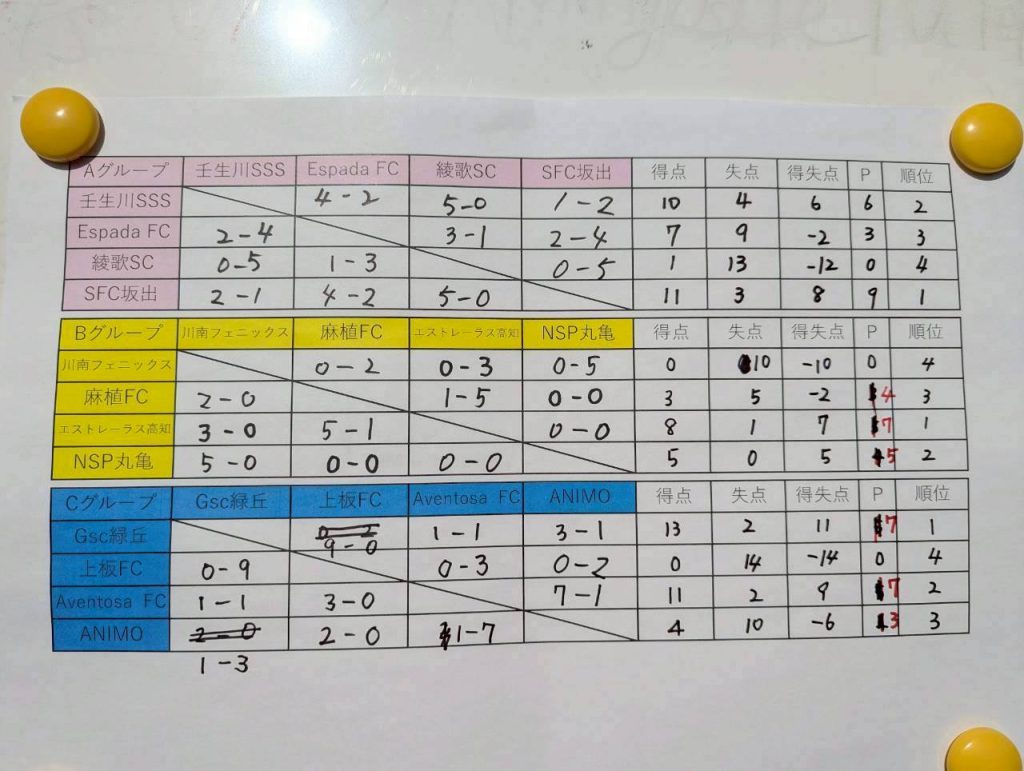 Aグループ 壬生川SSS Espada FC 綾歌SC SFC坂出 得点 失点 得失点 P 順位
壬生川SSS 4-2 5-0 1-2 10 4 6 6 2
Espada FC 2-4 3-1 2-4 7 9 -2 3 3
綾歌SC 0-5 1-3 0-5 1 13 -12 0 4
SFC坂出 2-1 4-2 5-0 11 3 8 9 1
Bグループ 川南フェニックス 麻植FC エストレーラス高知 NSP丸亀 得点 失点 得失点 P 順位
川南フェニックス 0-2 0-3 0-5 0 10 -10 0 4
麻植FC 2-0 1-5 0-0 3 5 -2 4 3
エストレーラス高知 3-0 5-1 0-0 8 1 7 7 1
NSP丸亀 5-0 0-0 0-0 5 0 5 5 2
Cグループ Gsc緑丘 上板FC Aventosa FC ANIMO 得点 失点 得失点 P 順位
Gsc緑丘 9-0 1-1 3-1 13 2 11 7 1
上板FC 0-9 0-3 0-2 0 14 -14 0 4
Aventosa FC 1-1 3-0 7-1 11 2 9 7 2
ANIMO 2-0 2-0 1-7 4 10 -6 3 3
1-3